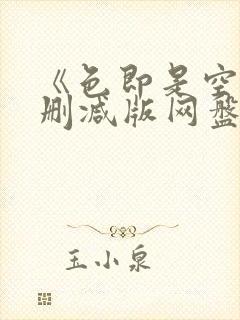 《色即是空
删减版网盘
玉小泉